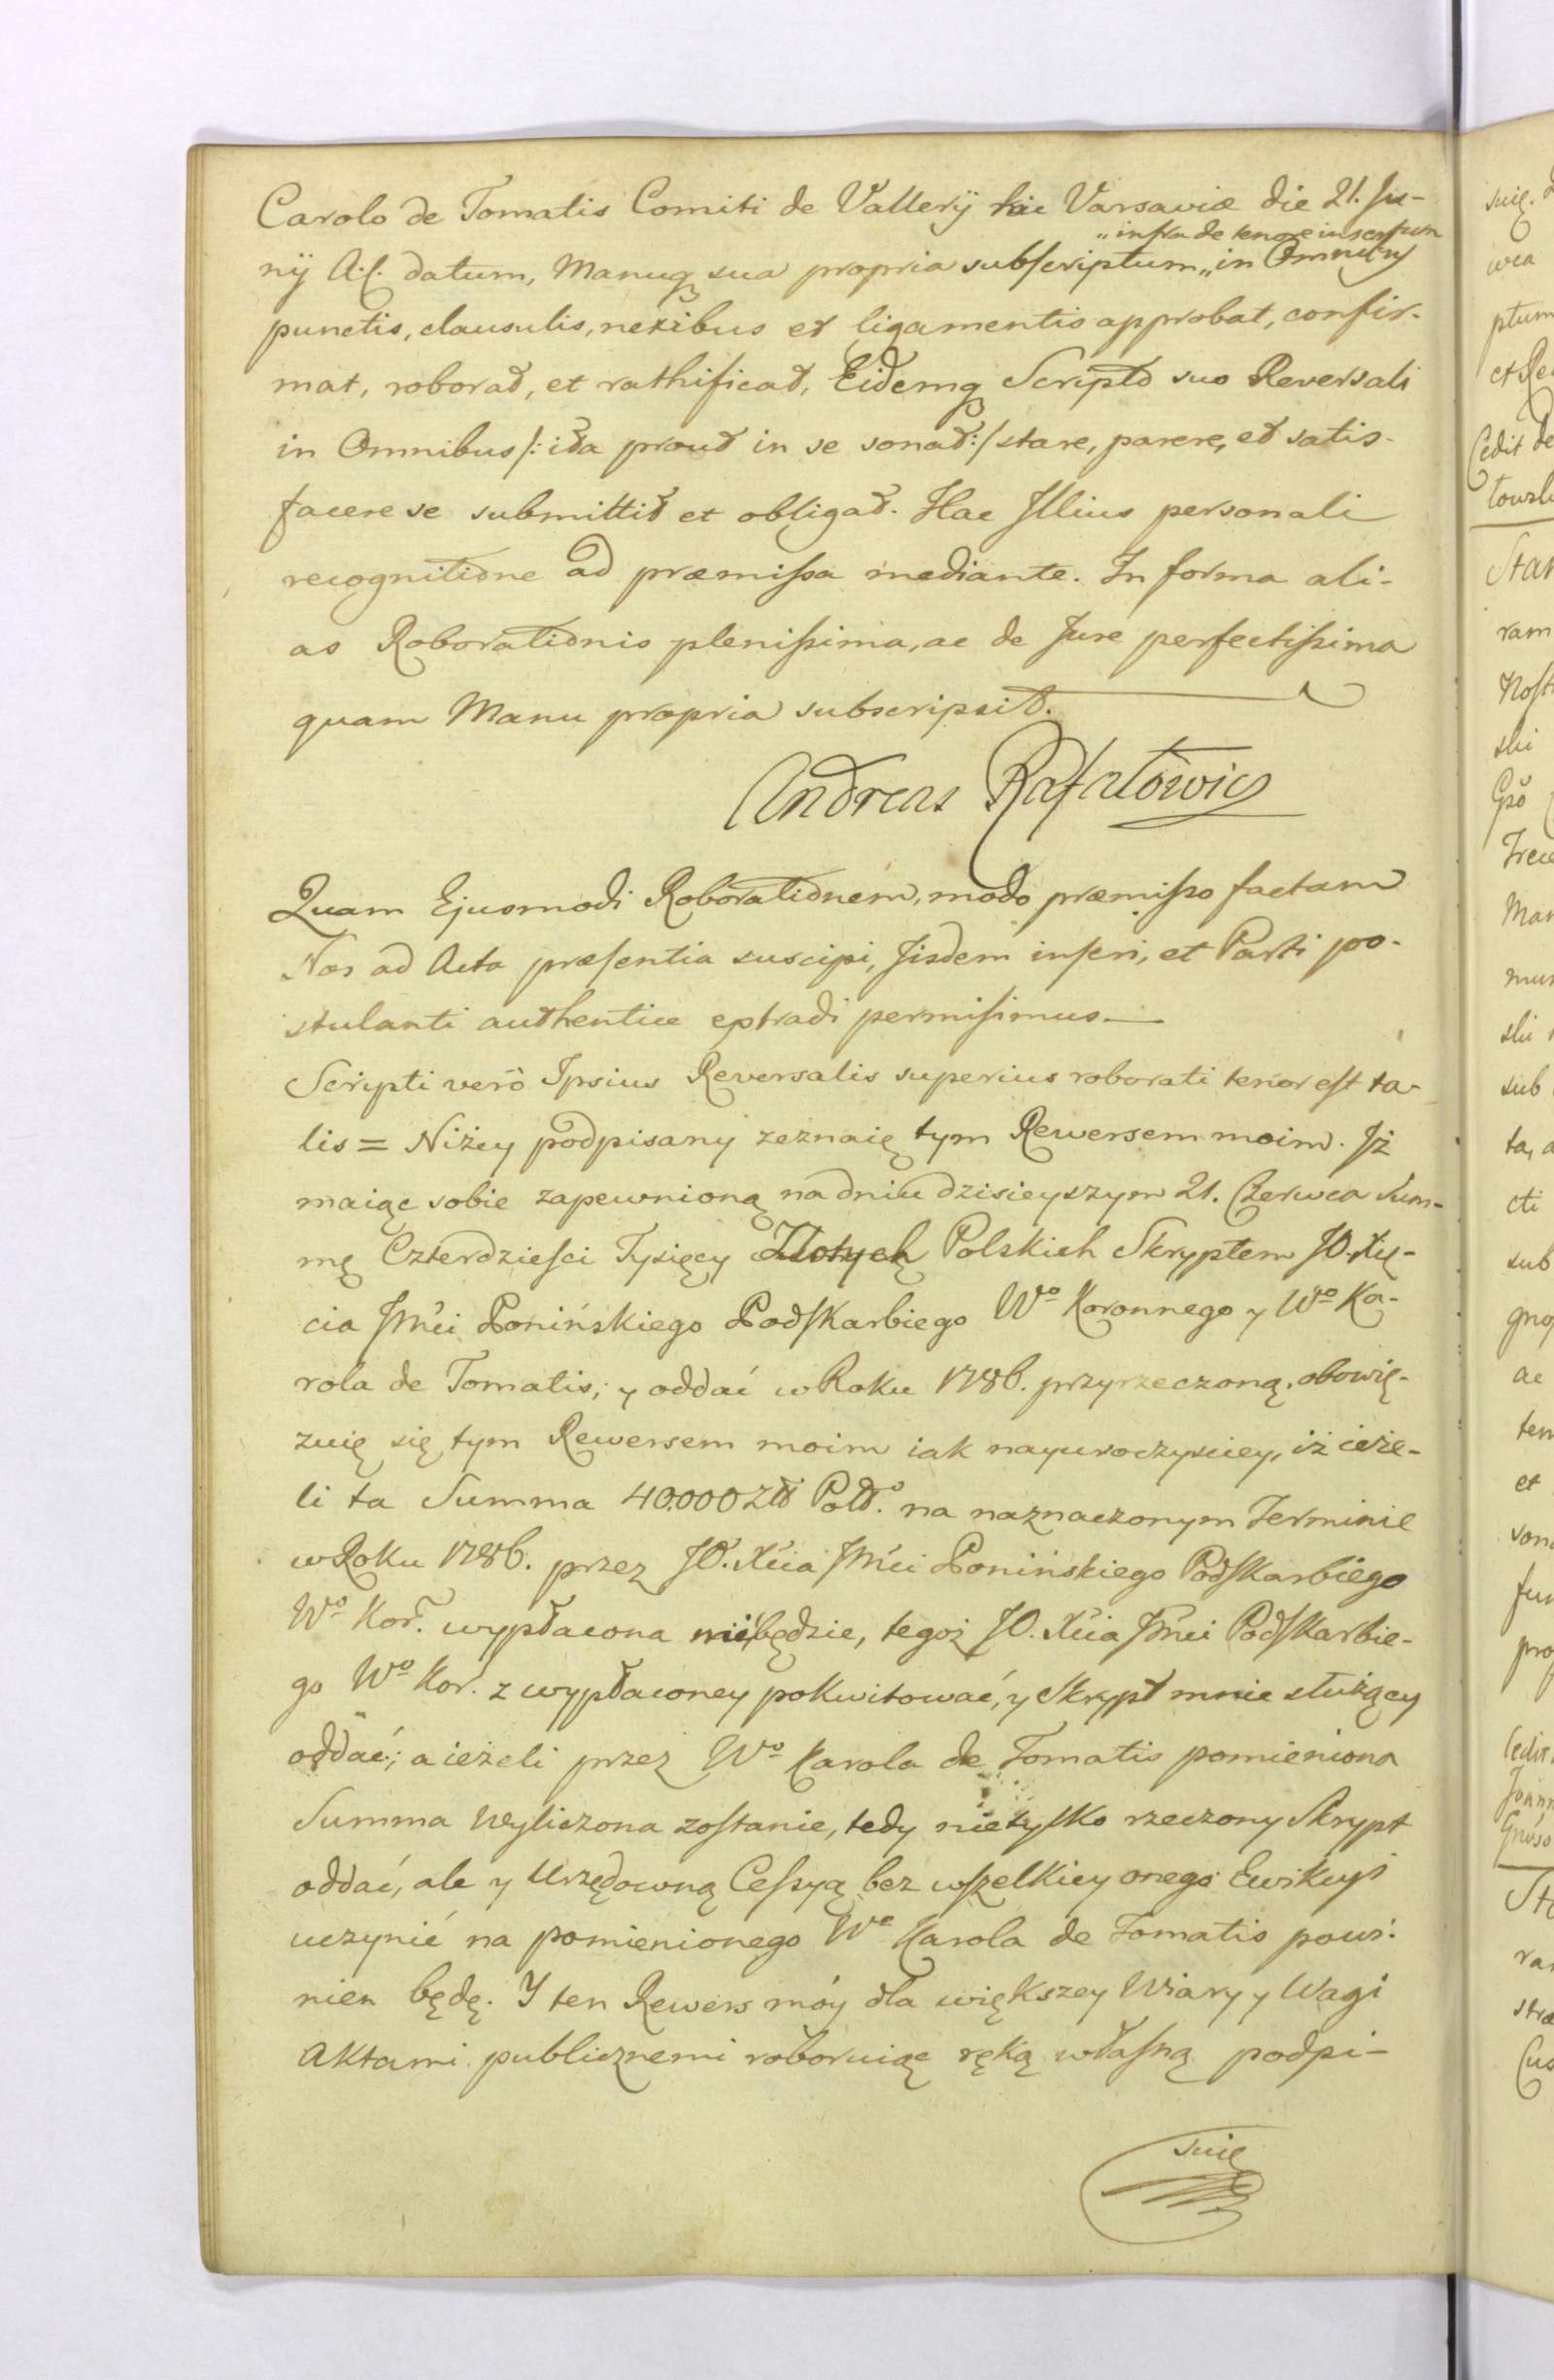 Carolo de Tomatis Comiti de Vallerÿ hic Varsaviæ die 21. Ju-
„infra de tenore insertum
nÿ A.C. datum, Manuq sua propria subscriptum „in Omnibus
punctis, clausulis, nexibus et ligamentis approbat, confir-
mat, roborat, et rathificat, Eidemq Scripto suo Reversali
in Omnibus /: ita prout in se sonat :/ stare, parere, et satis-
facere se submittit et obligat. Hac Jllius personali
recognitione ad præmissa mediante. In forma ali-
as Roborationis plenissima, ac de Jure perfectissima
quam Manu propria subscripsit.
Andreas Rafałowicz
Quam Ejusmodi Roborationem, modo præmisso factam
Nos ad Acta præsentia suscipi, Jisdem inseri, et Parti po-
stulanti authentice extradi permisimus —
Scripti verò Ipsius Reversalis superius roborati tenor est ta-
lis = Niżey podpisany zeznaię tym Rewersem moim. Jż
maiąc sobie zapewnioną na dniu dzisieyszym 21. Czerwca Sum-
mę Czterdzieści Tysięcy Złotych Polskich Skryptem JO. Xię-
cia Jmci Ponińskiego Podskarbiego Wo Koronnego y Wo Ka-
rola de Tomatis; y oddać w Roku 1786. przyrzeczoną, obowię-
zuię się tym Rewersem moim iak nayuroczyściey, iż ieże-
li ta Summa 40.000 Zło Pol. na naznaczonym Terminie
w Roku 1786. przez JO. Xcia Jmci Ponińskiego Podskarbiego
Wo Kor. wypłacona niebędzie, tegoż JO. Xcia Jmci Podskarbie-
go Wo Kor. z wypłaconey pokwitować, y Skrypt mnie służący
oddać; a ieżeli przez Wo Karola de Tomatis pomieniona
Summa wyliczona zostanie, tedy nietylko rzeczony Skrypt
oddać, ale y Urzędowną Cessyą bez wszelkiey onego Ewikcyi
uczynić na pomienionego Wo Karola de Tomatis powi-
nien będę. Y ten Rewers móy dla większey Wiary y Wagi
Aktami publicznemi roboruiąc ręką własną podpi-
suię